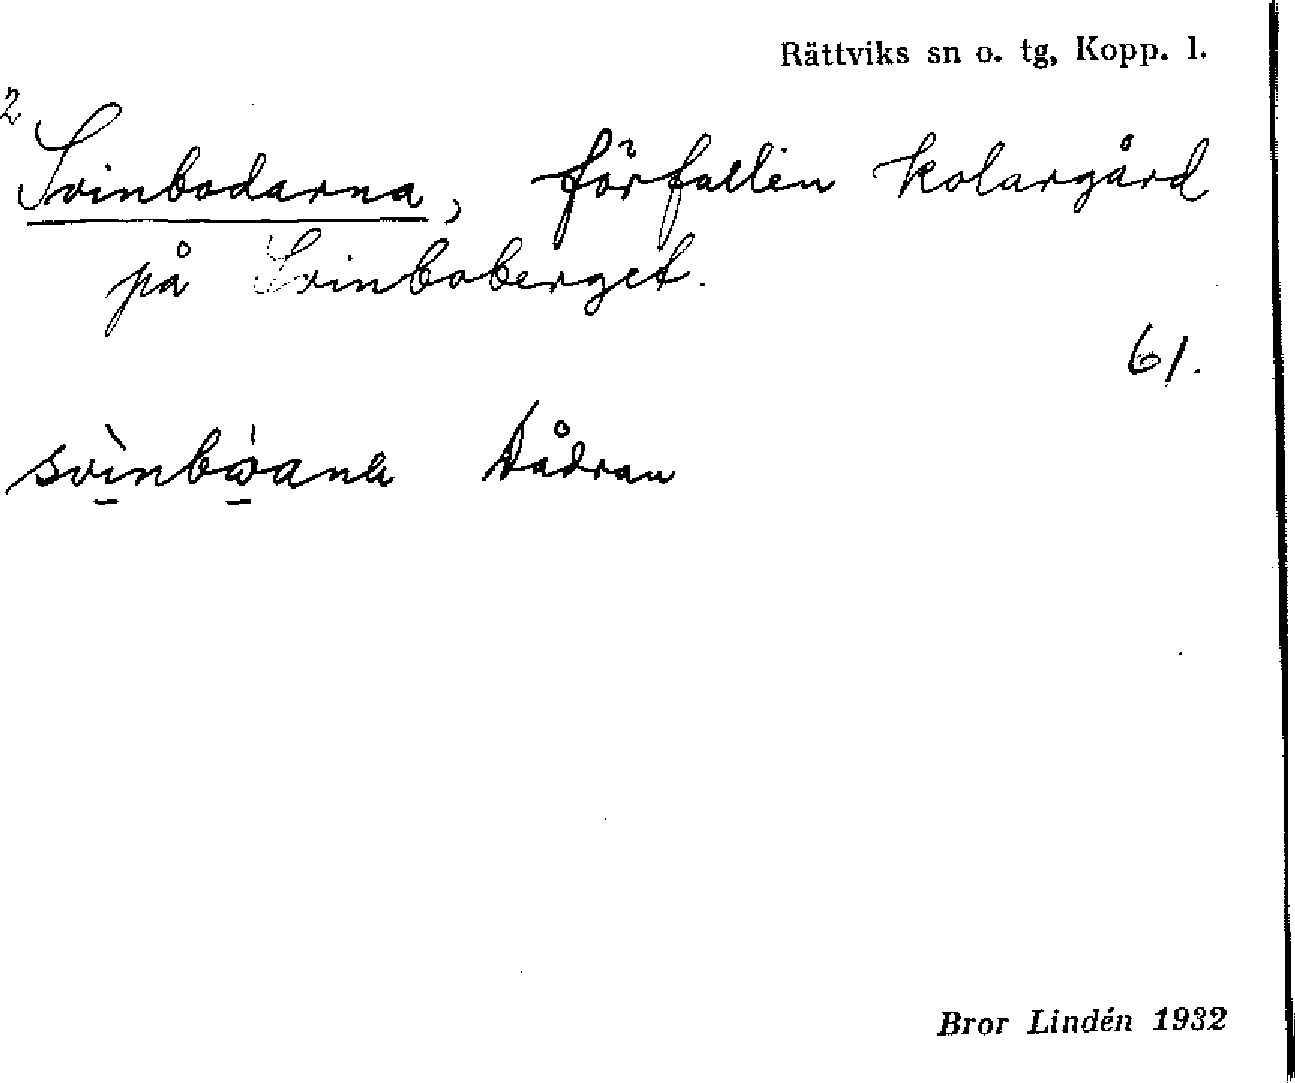 Rättviks sn o. tg, Kopp. l.
2
Svinbodarna, förfallen kolargård
på Svinboberget.
61.
svìnbὼana Dådran
Bror Lindén 1932